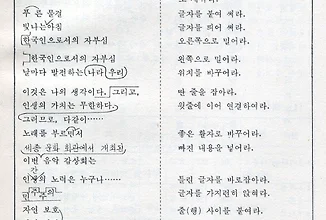 푸 른 물결 글자를 붙여 써라.
빛나는아침 글자를 띄어 써라.
한국인으로서의 자부심 오른쪽으로 밀어라.
한국인으로서의 자부심 왼쪽으로 밀어라.
날마다 발전하는 나라 우리 위치를 바꾸어라.
이것은 나의 생각이다. 그리고, 딴 줄을 잡아라.
인생의 가치는 무한하다. 윗줄에 이어 연결하여라.
그러므로, 다같이……
노래를 부르면서 좋은 활자로 바꾸어라.
세종 문화 회관에서 개최된 빠진 내용을 넣어라.
이번 음악 감상회는
간
인생의 노력은 누구나…… 틀린 글자를 바로잡아라.
민주주의 글자를 가지런히 앉혀라.
자연 보호 줄(행) 사이를 붙여라.